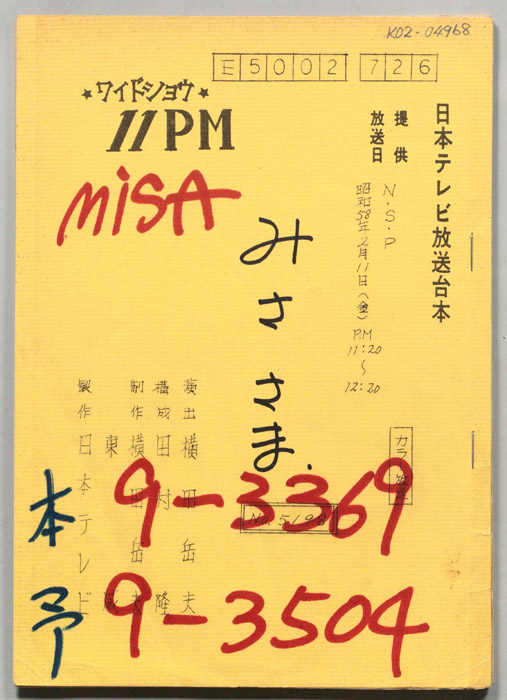 K02-04968
E5002 726
★ワイドショウ★
11PM
MiSA
日本テレビ放送台本
提供 N・S・P
放送日 昭和58年2月11日(金) P.M 11:20〜12:20
みささま.
カラー放送
演出 横田岳夫
構成 田村隆
制作 横田岳夫
東 威
製作 日本テレビ
No.5198
本 9-3369
予 9-3504